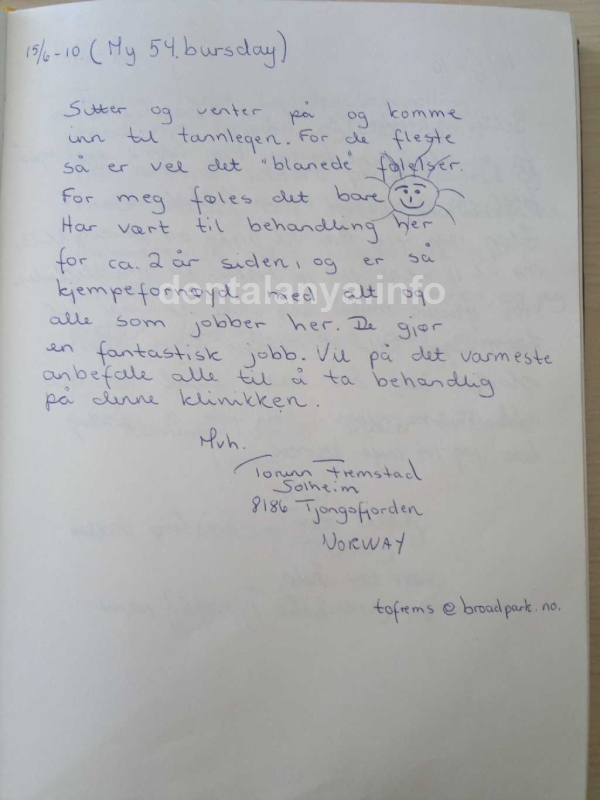 15/6-10 (My 54. bursday)
Sitter og venter på og komme
inn til tannlegen. For de fleste
så er vel det "blanede" følelser.
For meg føles det bare
Har vært til behandling her
for ca. 2 år siden, og er så
kjempefornøyd med alt og
dentalanya.info
alle som jobber her. De gjør
en fantastisk jobb. Vil på det varmeste
anbefale alle til å ta behandlig
på denne klinikken.
Mvh.
Torunn Fremstad
Solheim
8186 Tjongsfjorden
NORWAY
tofrems@broadpark.no.